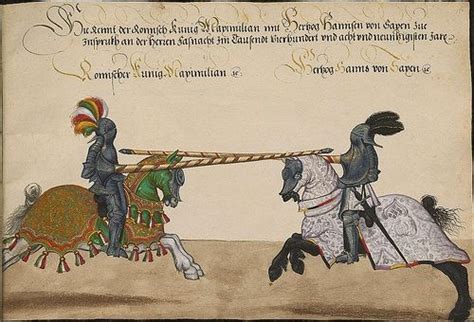 Hie Rennt der Romisch Kunig Maximilian mit Hertzog Hannsen von Saxen zue
Insprukh an der Herren Fasnacht Im Tausendt Vierhundert und acht und neuntzigisten Jare
Romischer Kunig Maximilian Hertzog Hanns von Saxen